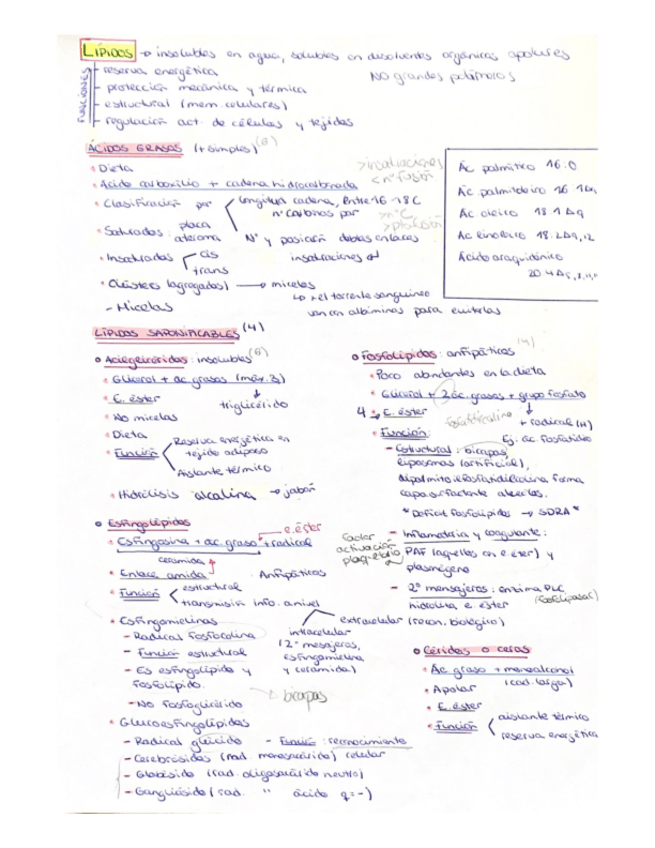 LÍPIDOS → insolubles en agua, solubles en disolventes orgánicos apolares
FUNCIONES
- reserva energética
NO grandes polímeros
- protección mecánica y térmica
- estructural (mem. celulares)
- regulación act. de células y tejidos
ÁCIDOS GRASOS (+ simples) (8)
• Dieta
• Ácido carboxílio + cadena hidrocarbonada
• Clasificación por
longitud cadena, Entre 16-18 C
nº carbonos par
Nº y posición dobles enlaces
insaturaciones
> insaturaciones
< nº fusión
> nº C
> pto fusión
• Saturados: placa ateroma
• Insaturados
cis
trans
• Clústers (agregados) → micelas
↳ x el torrente sanguíneo
van con albúminas para evitarlas
- Micelas
Ác palmítico 16:0
Ác palmitoleico 16:1Δ9
Ác oleico 18:1 Δ9
Ác linoleico 18:2Δ9,12
Ácido araquidónico
20:4Δ5,8,11,
LÍPIDOS SAPONIFICABLES (4)
Acilglicéridos: insolubles (8)
• Glicerol + ác. grasos (máx. 3)
↓
triglicérido
• E. éster
• No micelas
• Dieta
• Función
Reserva energética en
tejido adiposo
Aislante térmico
• Hidrólisis alcalina → jabón
Fosfolípidos: anfipáticos (4)
• Poco abundantes en la dieta
• Glicerol + 2 ác. grasos + grupo fosfato
↓
+ radical (H)
Ej: ác. fosfatídio
4 • E. éster
fosfatidilcolina
• Función:
- Estructural: bicapas,
liposomas (artificial),
dipalmitoilfosfatidilcolina forma
capa surfactante alveolos.
* Déficit fosfolípidos → SDRA *
- Inflamatoria y coagulante:
PAF (aquellos con e. éter) y
plasmógeno
factor
activación
plaquetario
- 2º mensajeros: enzima PLC
hidroliza e. éster
(fosfolipasa)
Esfingolípidos
e. éster
• Esfingosina + ác. graso + radical
ceramida
• Enlace amida
Anfipáticos
• Función
estructural
transmisión info. a nivel
extracelular (recon. biológico)
intracelular
(2º mesajeros,
esfingomielina
y ceramida)
• Esfingomielinas
- Radical fosfocolina
- Función estructural
- Es esfingolípido y
fosfolípido.
- No fosfoglicérido
→ bicapas
• Glucoesfingolípidos
- Radical glúcido
- Función: reconocimiento
celular
- Cerebrósidos (rad. monosacárido)
- Globósido (rad. oligosacárido neutro)
- Gangliósido (rad. " ácido q=-)
Céridos o ceras
• Ác. graso + monoalcohol
(cad. larga)
• Apolar
• E. éster
• Función
aislante térmico
reserva energética